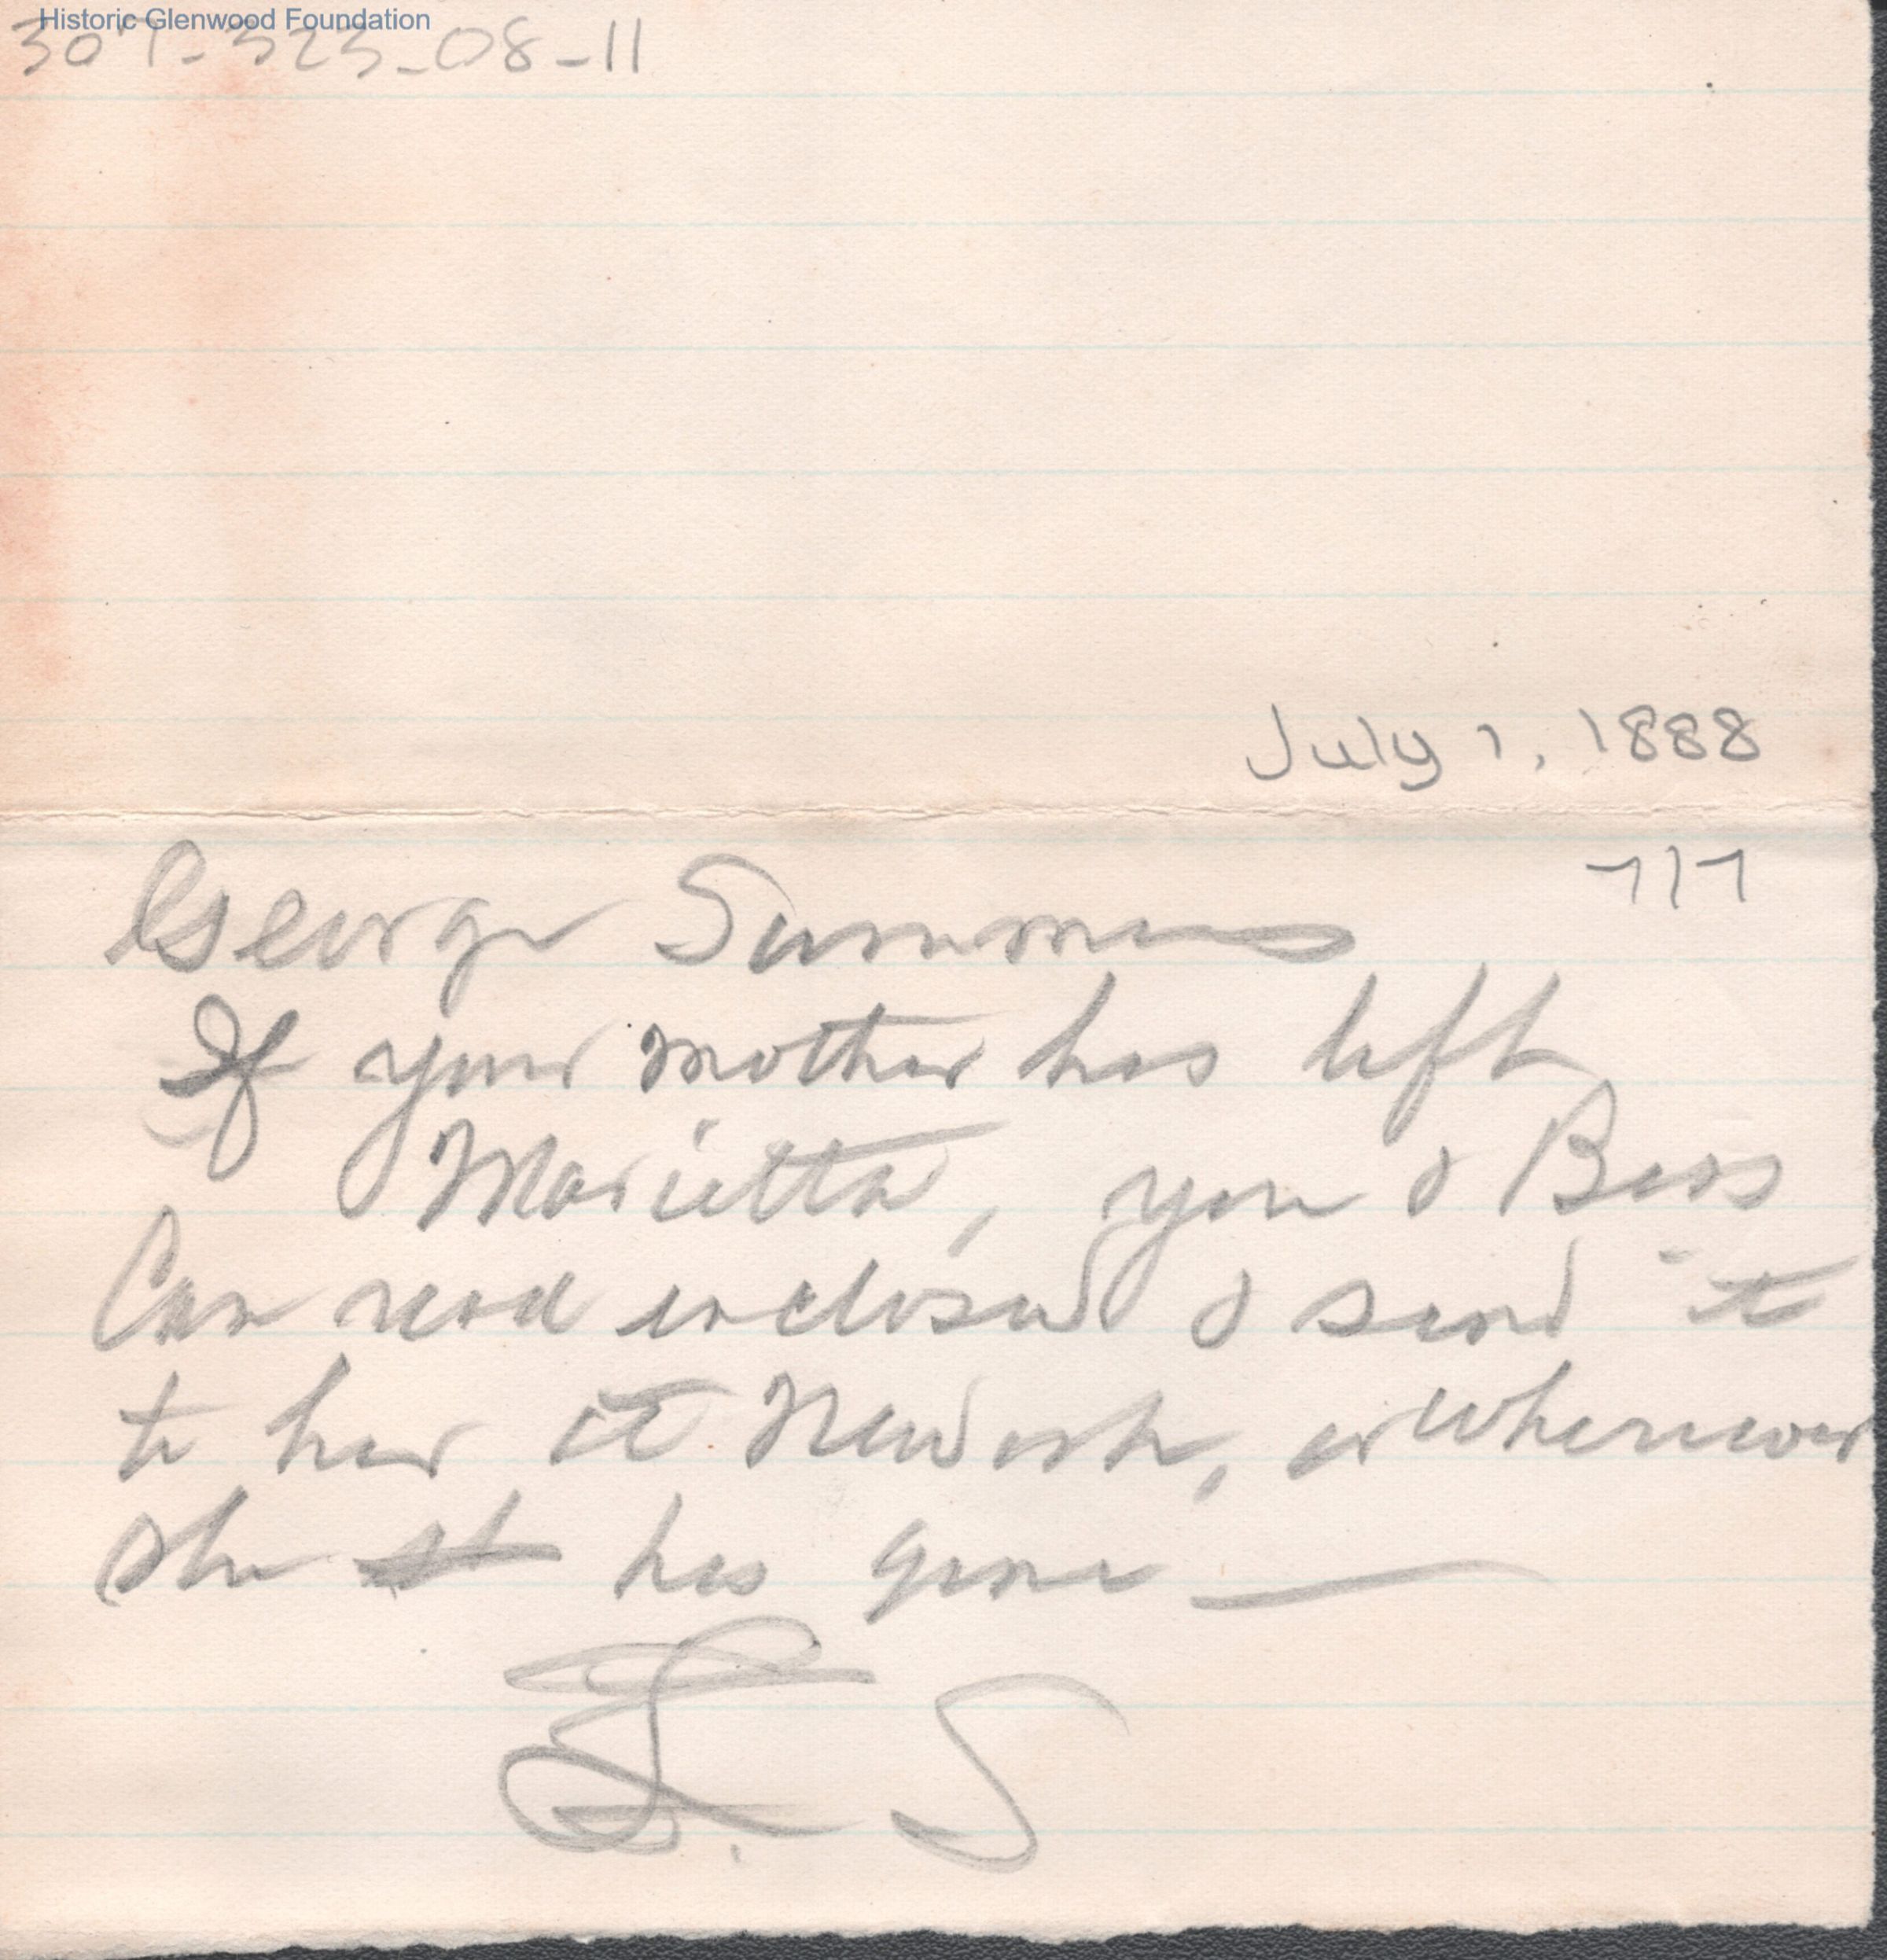 Historic Glenwood Foundation
307-323-08-11
July 1, 1888
717
George Summers
If your mother has left
Marietta, you & Bess
Can read enclosed & send it
to her at Newark, or wherever
she has gone —
L. S